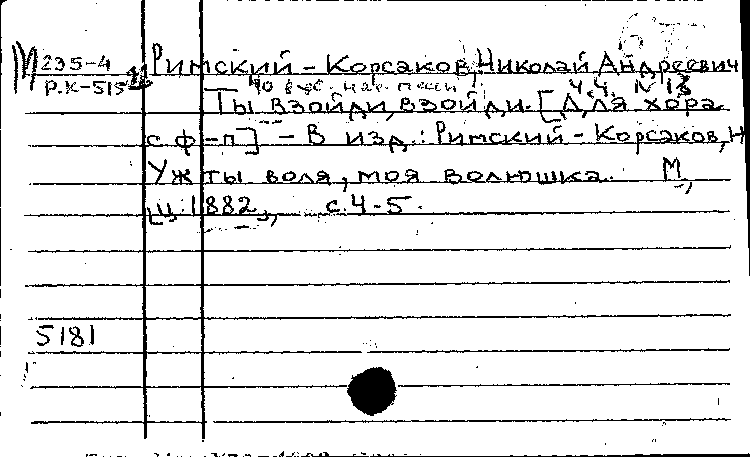 М 235-4 Римский-Корсаков, Николай Андреевич
Р.К-515
40 рус. нар. песен ч.4. N 13
Ты взойди, взойди. [Для хора
с ф-п] - В изд.: Римский-Корсаков, Н
Уж ты воля, моя волюшка. М,
[ц. 1882], с. 4-5.
5181